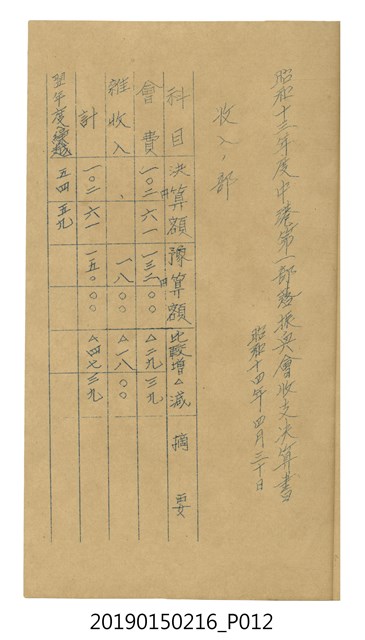 昭和十三年度中港第一部落振興會收支決算書
昭和十四年四月三十日
收入ノ部
科目 決算額 豫算額 比較增△減 摘要
會費 一〇二六一 一三二〇〇 △二九三九
雜收入 、 一八〇〇 △一八〇〇
計 一〇二六一 一五〇〇〇 △四七三九
翌年度繰越 五四五九
20190150216_P012